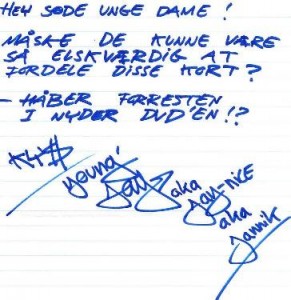 HEY SØDE UNGE DAME!
MÅSKE DE KUNNE VÆRE
SÅ ELSKVÆRDIG AT
FORDELE DISSE KORT?
- HÅBER FORRESTEN
I NYDER DVD'EN!?
Young
Jay aka
Jay-NICE
aka
Jannik